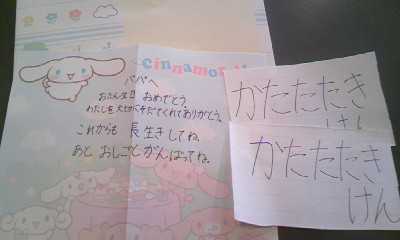 cinnamoroll
パパへ
おたん生日 おめでとう。
わたしを 大さかくそだてくれてありがとう。
これからも 長生きしてね。
あと おしごとがんばってね。
かたたたき
けん
かたたたき
けん